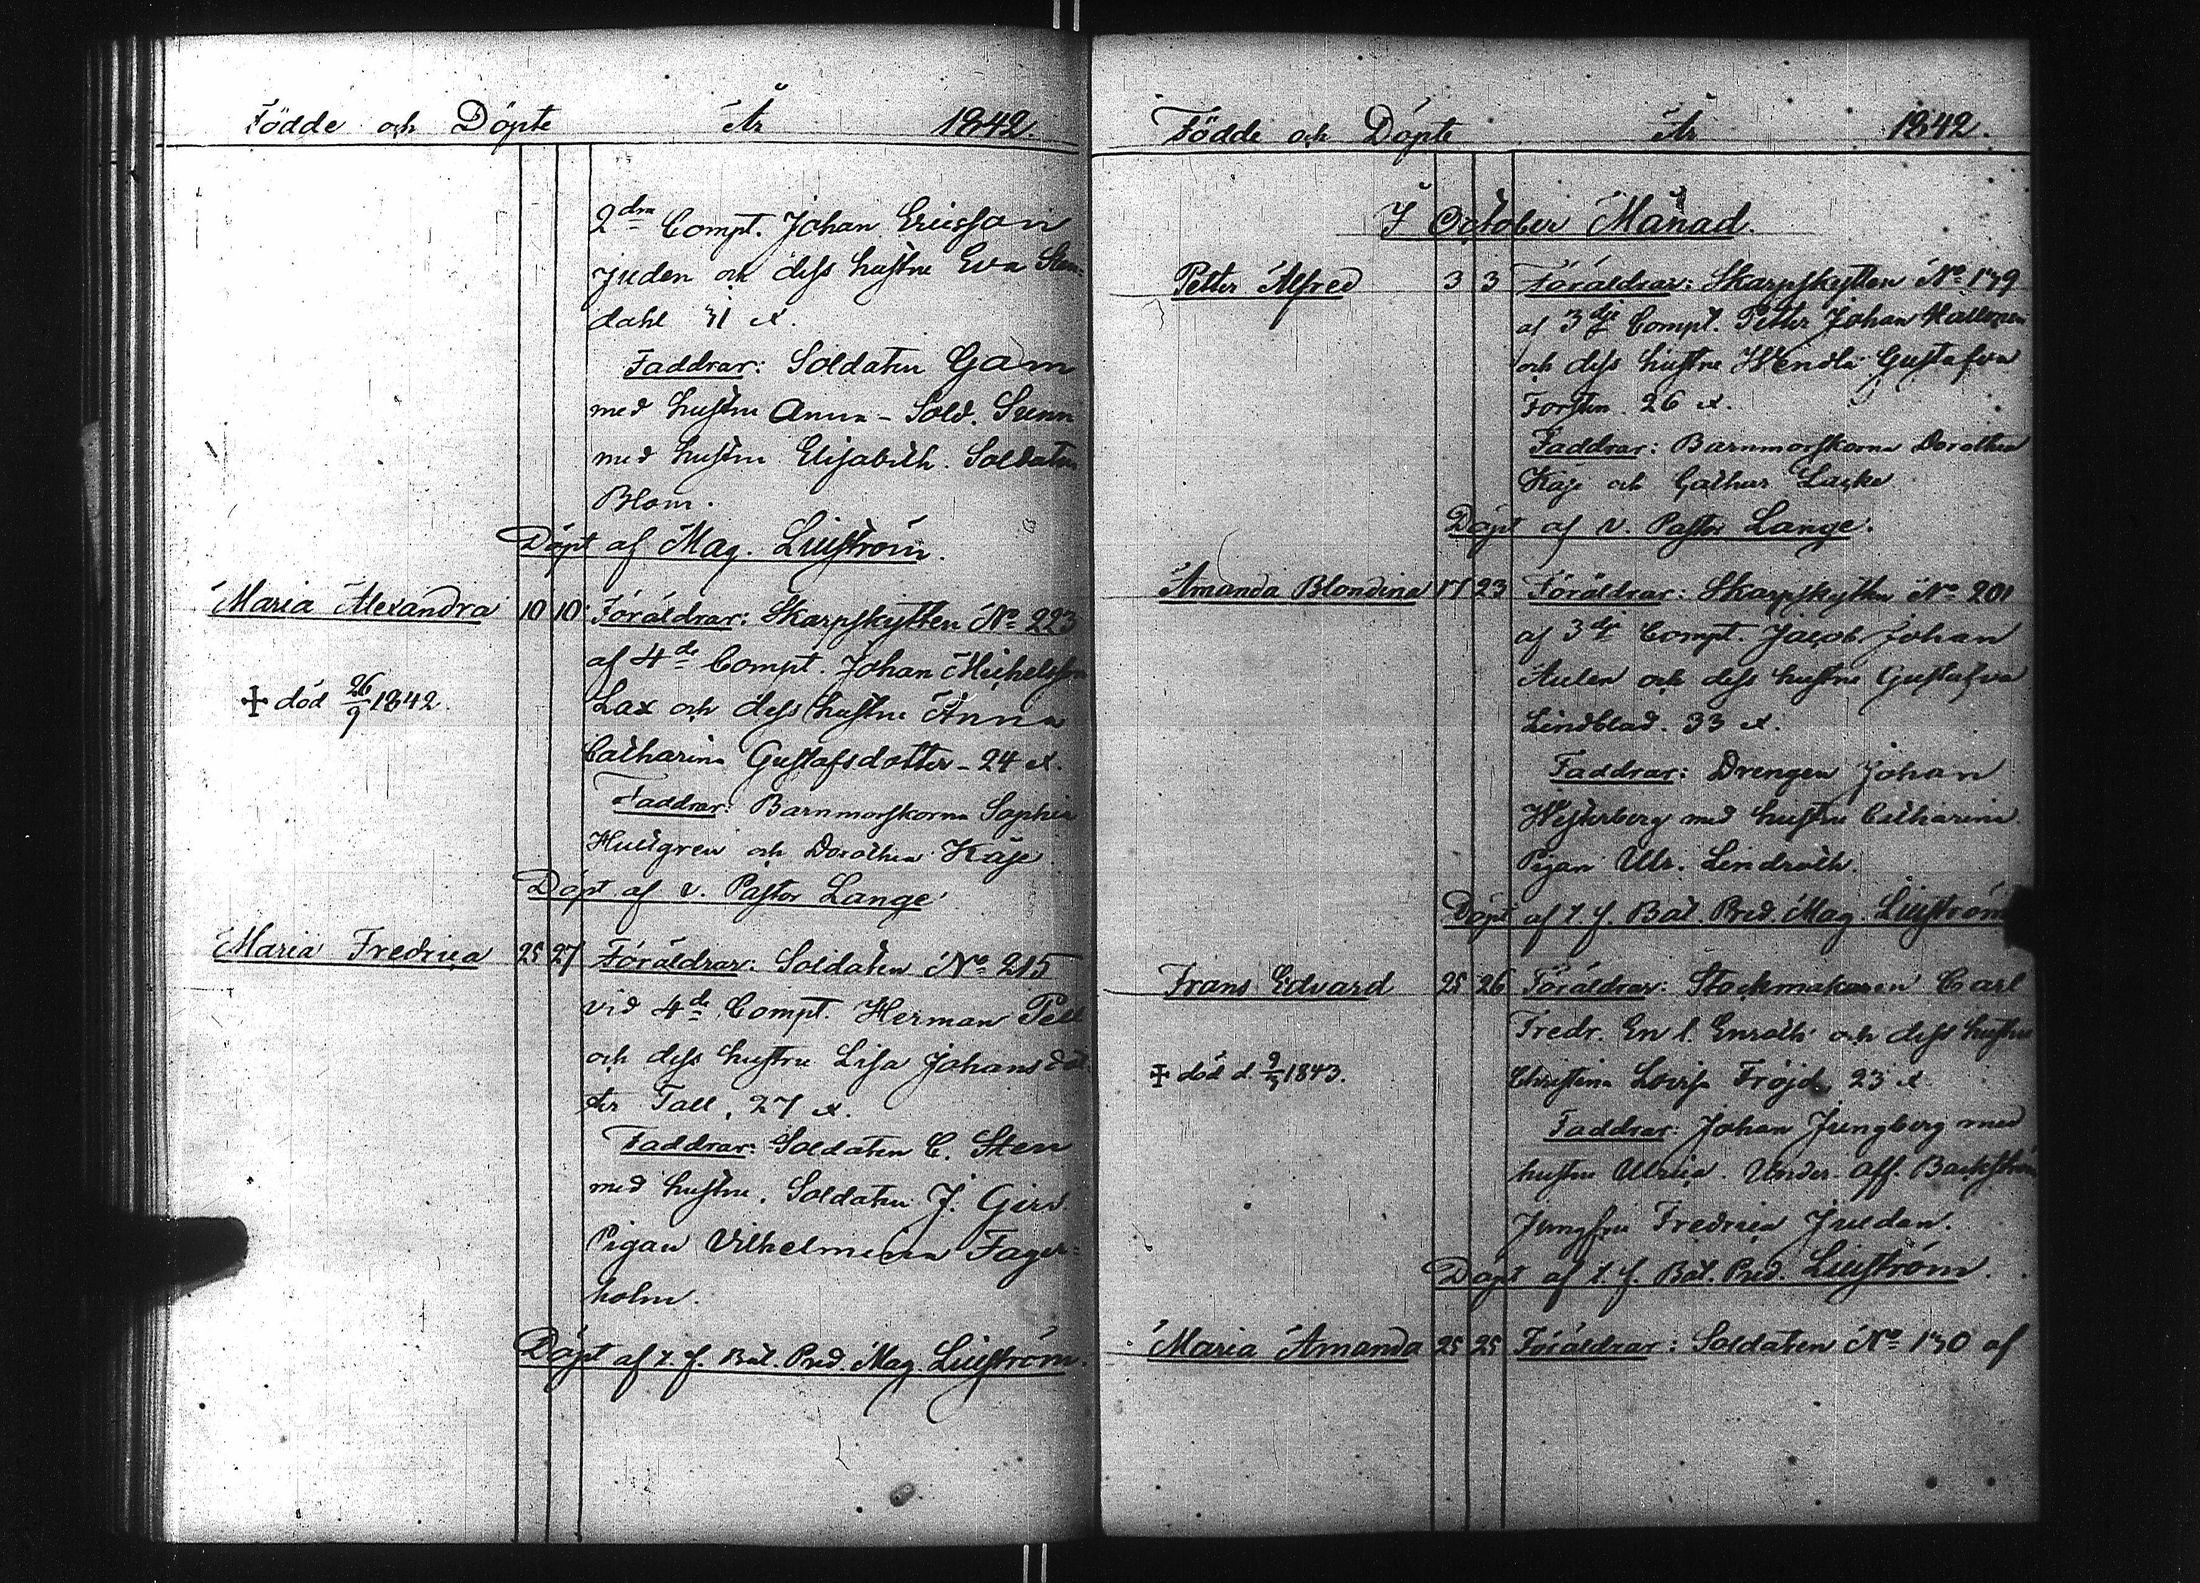 Födde och Döpte År 1842.
2dra Compt. Johan Ericsson
Juden och dess hustru Eva Sten-
dahl 31 .
Faddrar: Soldaten Gam
med hustru Anna – Sold. Sunn
med hustru Elisabeth. Soldaten
Blom.
Döpt af Mag. Liliström.
Maria Alexandra 10 10 Föräldrar: Skarpskytten No 223
af 4de Compt. Johan Michelsson
† död 26/9 1842. Lax och dess hustru Anna
Catharina Gustafsdotter – 24 .
Faddrar: Barnmorskorna Sophia
Hultgren och Dorothea Käje
Döpt af v. Pastor Lange
Maria Fredrica 25 27 Föräldrar: Soldaten No 215
vid 4de Compt. Herman Pell
och dess hustru Lisa Johansdot-
ter Tall, 27 .
Faddrar: Soldaten C. Sten
med hustru. Soldaten J. Girs.
Pigan Vilhelmina Fager-
holm.
Döpt af t. f. Bat. Pred. Mag. Liliström.
Födde och Döpte År 1842.
I October Månad.
Petter Alfred 3 3 Föräldrar: Skarpskytten No 139
af 3dje Compt. Petter Johan Hallonen
och dess hustru Wendla Gustafva
Forsten 26 .
Faddrar: Barnmorskorna Dorothea
Käje och Cathar. Lacke
Döpt af v. Pastor Lange.
Amanda Blondina 17 23 Föräldrar: Skarpskytten No 201
af 3dje Compt. Jacob Johan
Aulen och dess hustru Gustafva
Lindblad. 33 .
Faddrar: Drengen Johan
Westerberg med hustru Catharina.
Pigan Ulr. Lindroth.
Döpt af t. f. Bat. Pred. Mag. Liliström
Frans Edvard 25 26 Föräldrar: Stockmakaren Carl
Fredr. En l. Enroth och dess hustru
† död d. 1843. Christina Lovisa Fröjd 23 .
Faddrar: Johan Jungberg med
hustru Ulrica. Under-off. Backström
Jungfru Fredrica Juedan.
Döpt af t. f. Bat. Pred. Liliström.
Maria Amanda 25 25 Föräldrar: Soldaten No 130 af